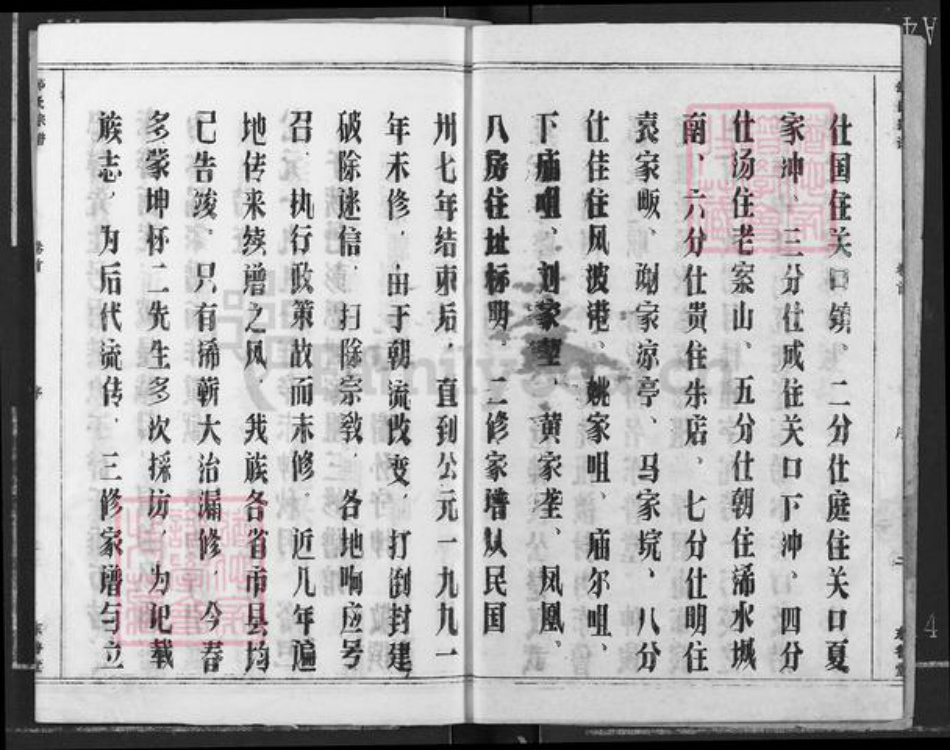 仕国住关口镇、二分仕庭住关口夏
家冲、三分仕成住关口下冲、四分
仕汤住老案山、五分仕朝住浠水城
南、六分仕贵住朱店、七分仕明住
袁家畈、谢家凉亭、马家垸、八分
仕佳住风波港、姚家咀、庙尔咀、
下庙咀、刘家塱、黄家垄、凤凰、
八房住址标明、二修家谱从民国
卅七年结束后，直到公元一九九一
年未修，由于朝流改变，打倒封建
破除迷信，扫除宗教，各地响应号
召，执行政策故而未修，近几年遍
地传来续增之风，我族各省市县均
已告竣，只有浠蕲大治漏修，今春
多蒙坤怀二先生多次採访，为记载
族志，为后代流传，三修家谱与立